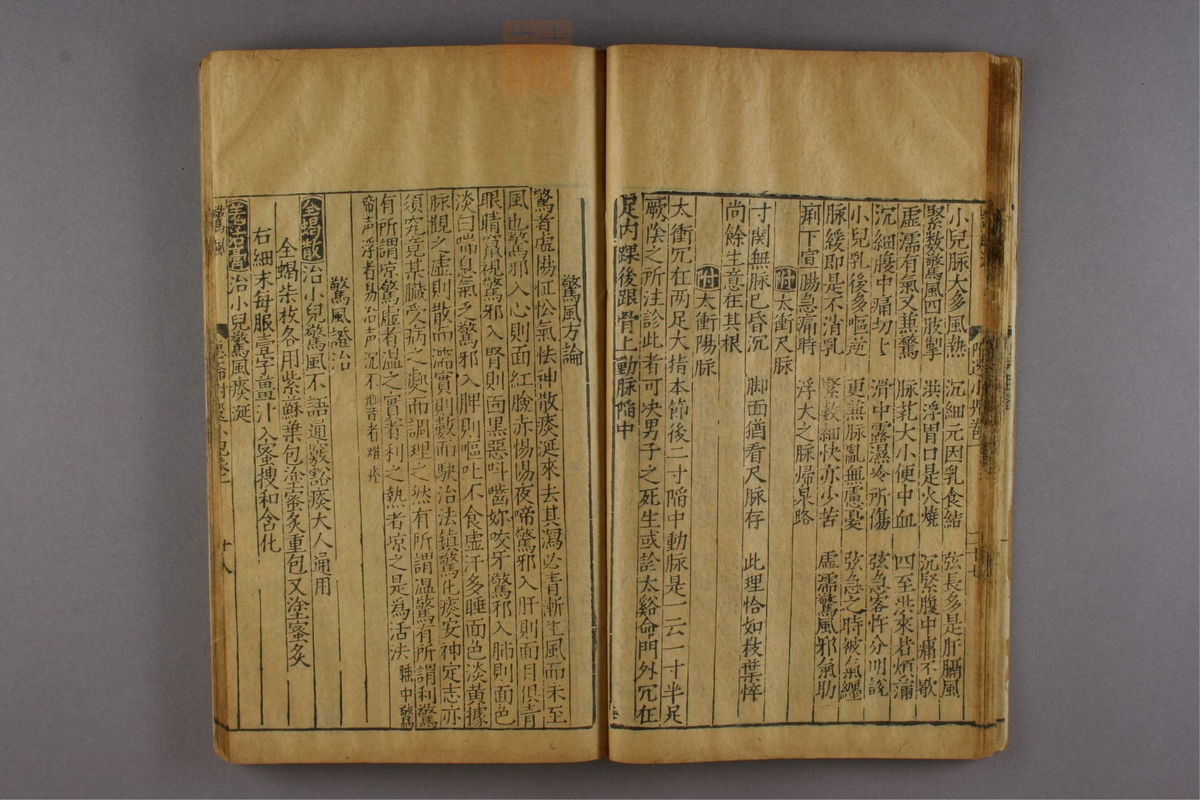 小兒脉大多風熱　沉細元因乳食結　弦長多是肝膈風
緊数驚風四肢掣　洪浮胃口是火燒　沉緊腹中痛不歇
虛濡有氣又兼驚　脉乱大小便中血　四至洪來若煩滿
沉細腹中痛切切　滑中露濕冷所傷　弦急客忤分明說
小兒乳後多嘔逆　更兼脉亂無慮憂　弦急之時被氣纏
脉緩即是不消乳　緊数細快亦少苦　虛濡驚風邪氣助
痢下宣腸急痛時　浮大之脉歸泉路
附太衝尺脉
寸関無脉已昏沉　脚面猶看尺脉存　此理恰如枝葉悴
尚餘生意在其根
附太衝陽脉
太衝穴在両足大指本節後二寸陷中動脉是一云一寸半足
厥陰之所注診此者可决男子之死生或診太谿命門外穴在
足内踝後跟骨上動脉陷中
驚風方論
驚者虛惕怔忪氣怯神散痰涎來去其瀉必青漸生風而未至
風也驚邪入心則面紅臉赤惕惕夜啼驚邪入肝則面目俱青
眼睛竄視驚邪入腎則面黒惡叫嚙妳咬牙驚邪入肺則面色
淡白喘息氣乏驚邪入脾則嘔吐不食虛汗多睡面色淡黄據
脉觀之虛則散而濡實則数而駃治法鎮驚化痰安神定志亦
須究竟某臓受病之處而調理之然有所謂温驚有所謂利驚
有所謂凉驚虛者温之實者利之熱者凉之是爲活法睡中驚
啼声浮者易治声沉不響者难痊
驚風證治
全蝎散治小兒驚風不語通竅豁痰大人通用
全蝎柒枚各用紫蘇葉包塗蜜炙重包又塗蜜炙
右細末每服壹字薑汁入蜜搜和含化
治小兒驚風痰涎
驚風
十八